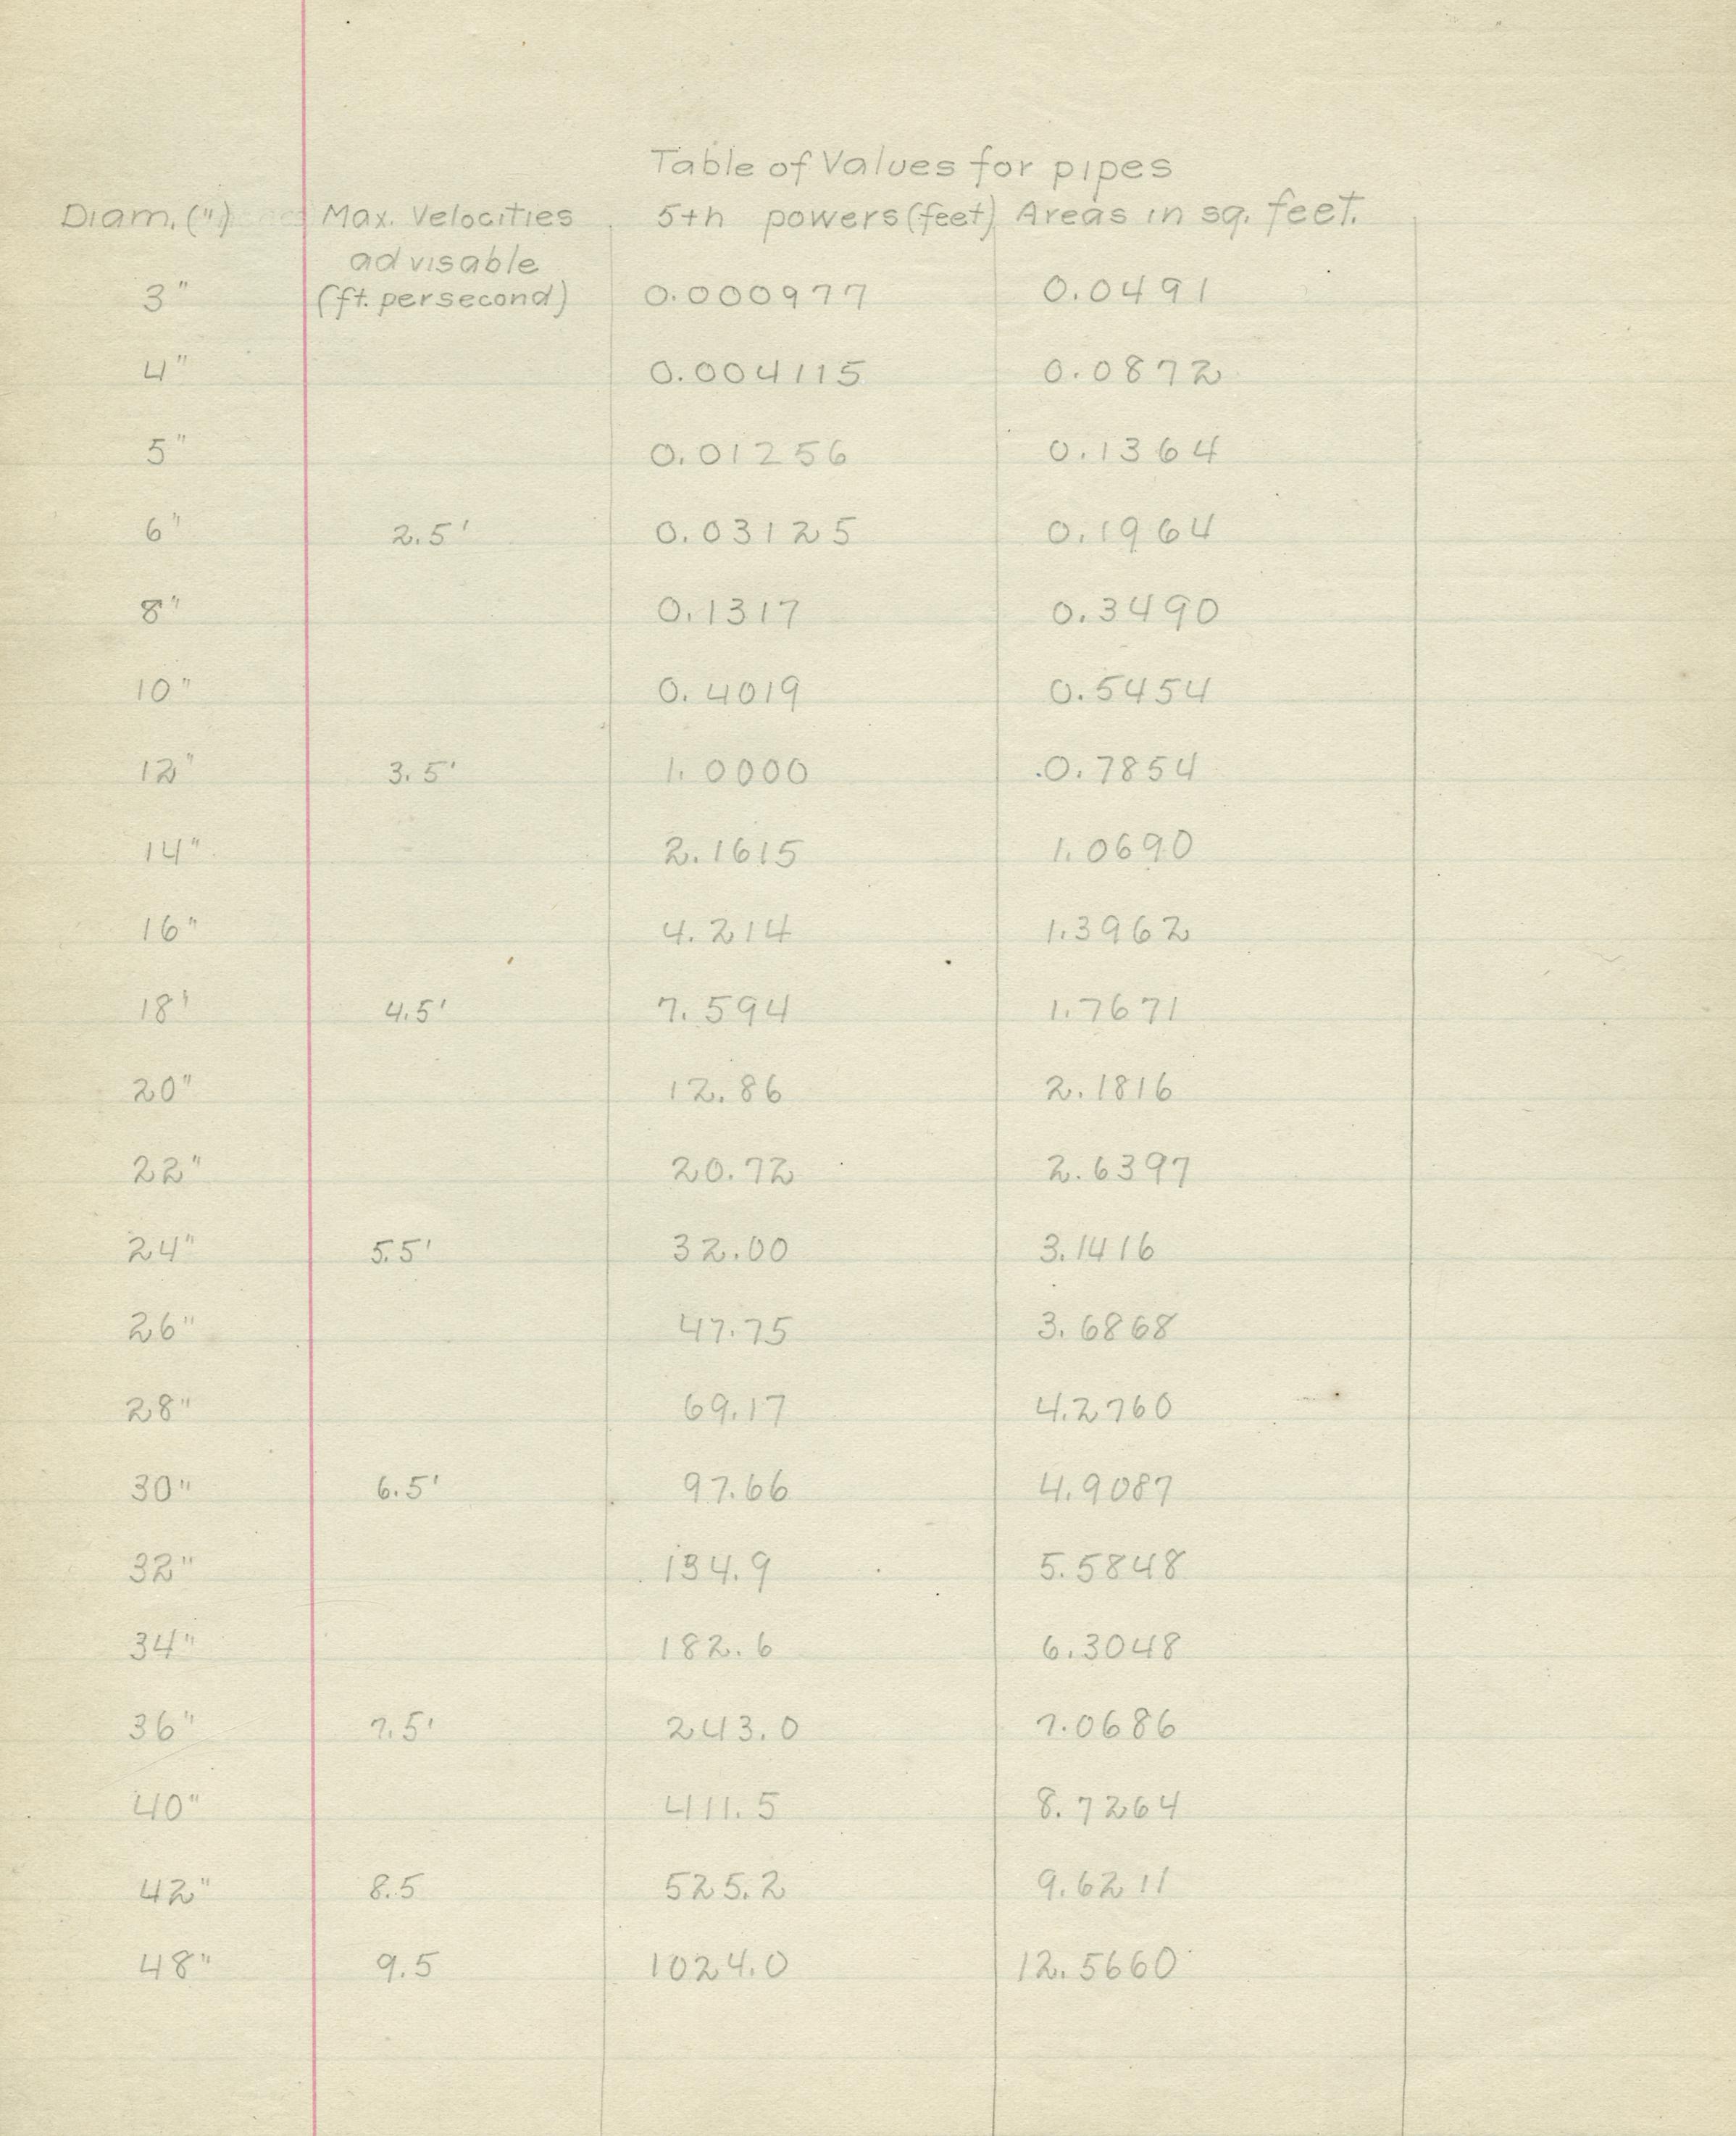 Table of Values for pipes
Diam. (") Max. Velocities 5th powers (feet) Areas in sq. feet.
advisable
3" (ft. per second) 0.000977 0.0491
4" 0.004115 0.0872
5" 0.01256 0.1364
6" 2.5' 0.03125 0.1964
8" 0.1317 0.3490
10" 0.4019 0.5454
12" 3.5' 1.0000 0.7854
14" 2.1615 1.0690
16" 4.214 1.3962
18' 4.5' 7.594 1.7671
20" 12.86 2.1816
22" 20.72 2.6397
24" 5.5' 32.00 3.1416
26" 47.75 3.6868
28" 69.17 4.2760
30" 6.5' 97.66 4.9087
32" 134.9 5.5848
34" 182.6 6.3048
36" 7.5' 243.0 7.0686
40" 411.5 8.7264
42" 8.5 525.2 9.6211
48" 9.5 1024.0 12.5660